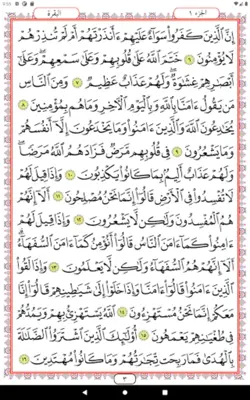 البقرة الجزء ١
إِنَّ ٱلَّذِينَ كَفَرُوا۟ سَوَآءٌ عَلَيْهِمْ ءَأَنذَرْتَهُمْ أَمْ لَمْ تُنذِرْهُمْ
لَا يُؤْمِنُونَ ٦ خَتَمَ ٱللَّهُ عَلَىٰ قُلُوبِهِمْ وَعَلَىٰ سَمْعِهِمْ وَعَلَىٰٓ
أَبْصَٰرِهِمْ غِشَٰوَةٌ وَلَهُمْ عَذَابٌ عَظِيمٌ ٧ وَمِنَ ٱلنَّاسِ
مَن يَقُولُ ءَامَنَّا بِٱللَّهِ وَبِٱلْيَوْمِ ٱلْءَاخِرِ وَمَا هُم بِمُؤْمِنِينَ ٨
يُخَٰدِعُونَ ٱللَّهَ وَٱلَّذِينَ ءَامَنُوا۟ وَمَا يَخْدَعُونَ إِلَّآ أَنفُسَهُمْ
وَمَا يَشْعُرُونَ ٩ فِى قُلُوبِهِم مَّرَضٌ فَزَادَهُمُ ٱللَّهُ مَرَضًا
وَلَهُمْ عَذَابٌ أَلِيمٌۢ بِمَا كَانُوا۟ يَكْذِبُونَ ١٠ وَإِذَا قِيلَ لَهُمْ
لَا تُفْسِدُوا۟ فِى ٱلْأَرْضِ قَالُوٓا۟ إِنَّمَا نَحْنُ مُصْلِحُونَ ١١ أَلَآ إِنَّهُمْ
هُمُ ٱلْمُفْسِدُونَ وَلَٰكِن لَّا يَشْعُرُونَ ١٢ وَإِذَا قِيلَ لَهُمْ
ءَامِنُوا۟ كَمَآ ءَامَنَ ٱلنَّاسُ قَالُوٓا۟ أَنُؤْمِنُ كَمَآ ءَامَنَ ٱلسُّفَهَآءُ
أَلَآ إِنَّهُمْ هُمُ ٱلسُّفَهَآءُ وَلَٰكِن لَّا يَعْلَمُونَ ١٣ وَإِذَا لَقُوا۟
ٱلَّذِينَ ءَامَنُوا۟ قَالُوٓا۟ ءَامَنَّا وَإِذَا خَلَوْا۟ إِلَىٰ شَيَٰطِينِهِمْ قَالُوٓا۟ إِنَّا
مَعَكُمْ إِنَّمَا نَحْنُ مُسْتَهْزِءُونَ ١٤ ٱللَّهُ يَسْتَهْزِئُ بِهِمْ وَيَمُدُّهُمْ
فِى طُغْيَٰنِهِمْ يَعْمَهُونَ ١٥ أُو۟لَٰٓئِكَ ٱلَّذِينَ ٱشْتَرَوُا۟ ٱلضَّلَٰلَةَ
بِٱلْهُدَىٰ فَمَا رَبِحَت تِّجَٰرَتُهُمْ وَمَا كَانُوا۟ مُهْتَدِينَ ١٦
٣